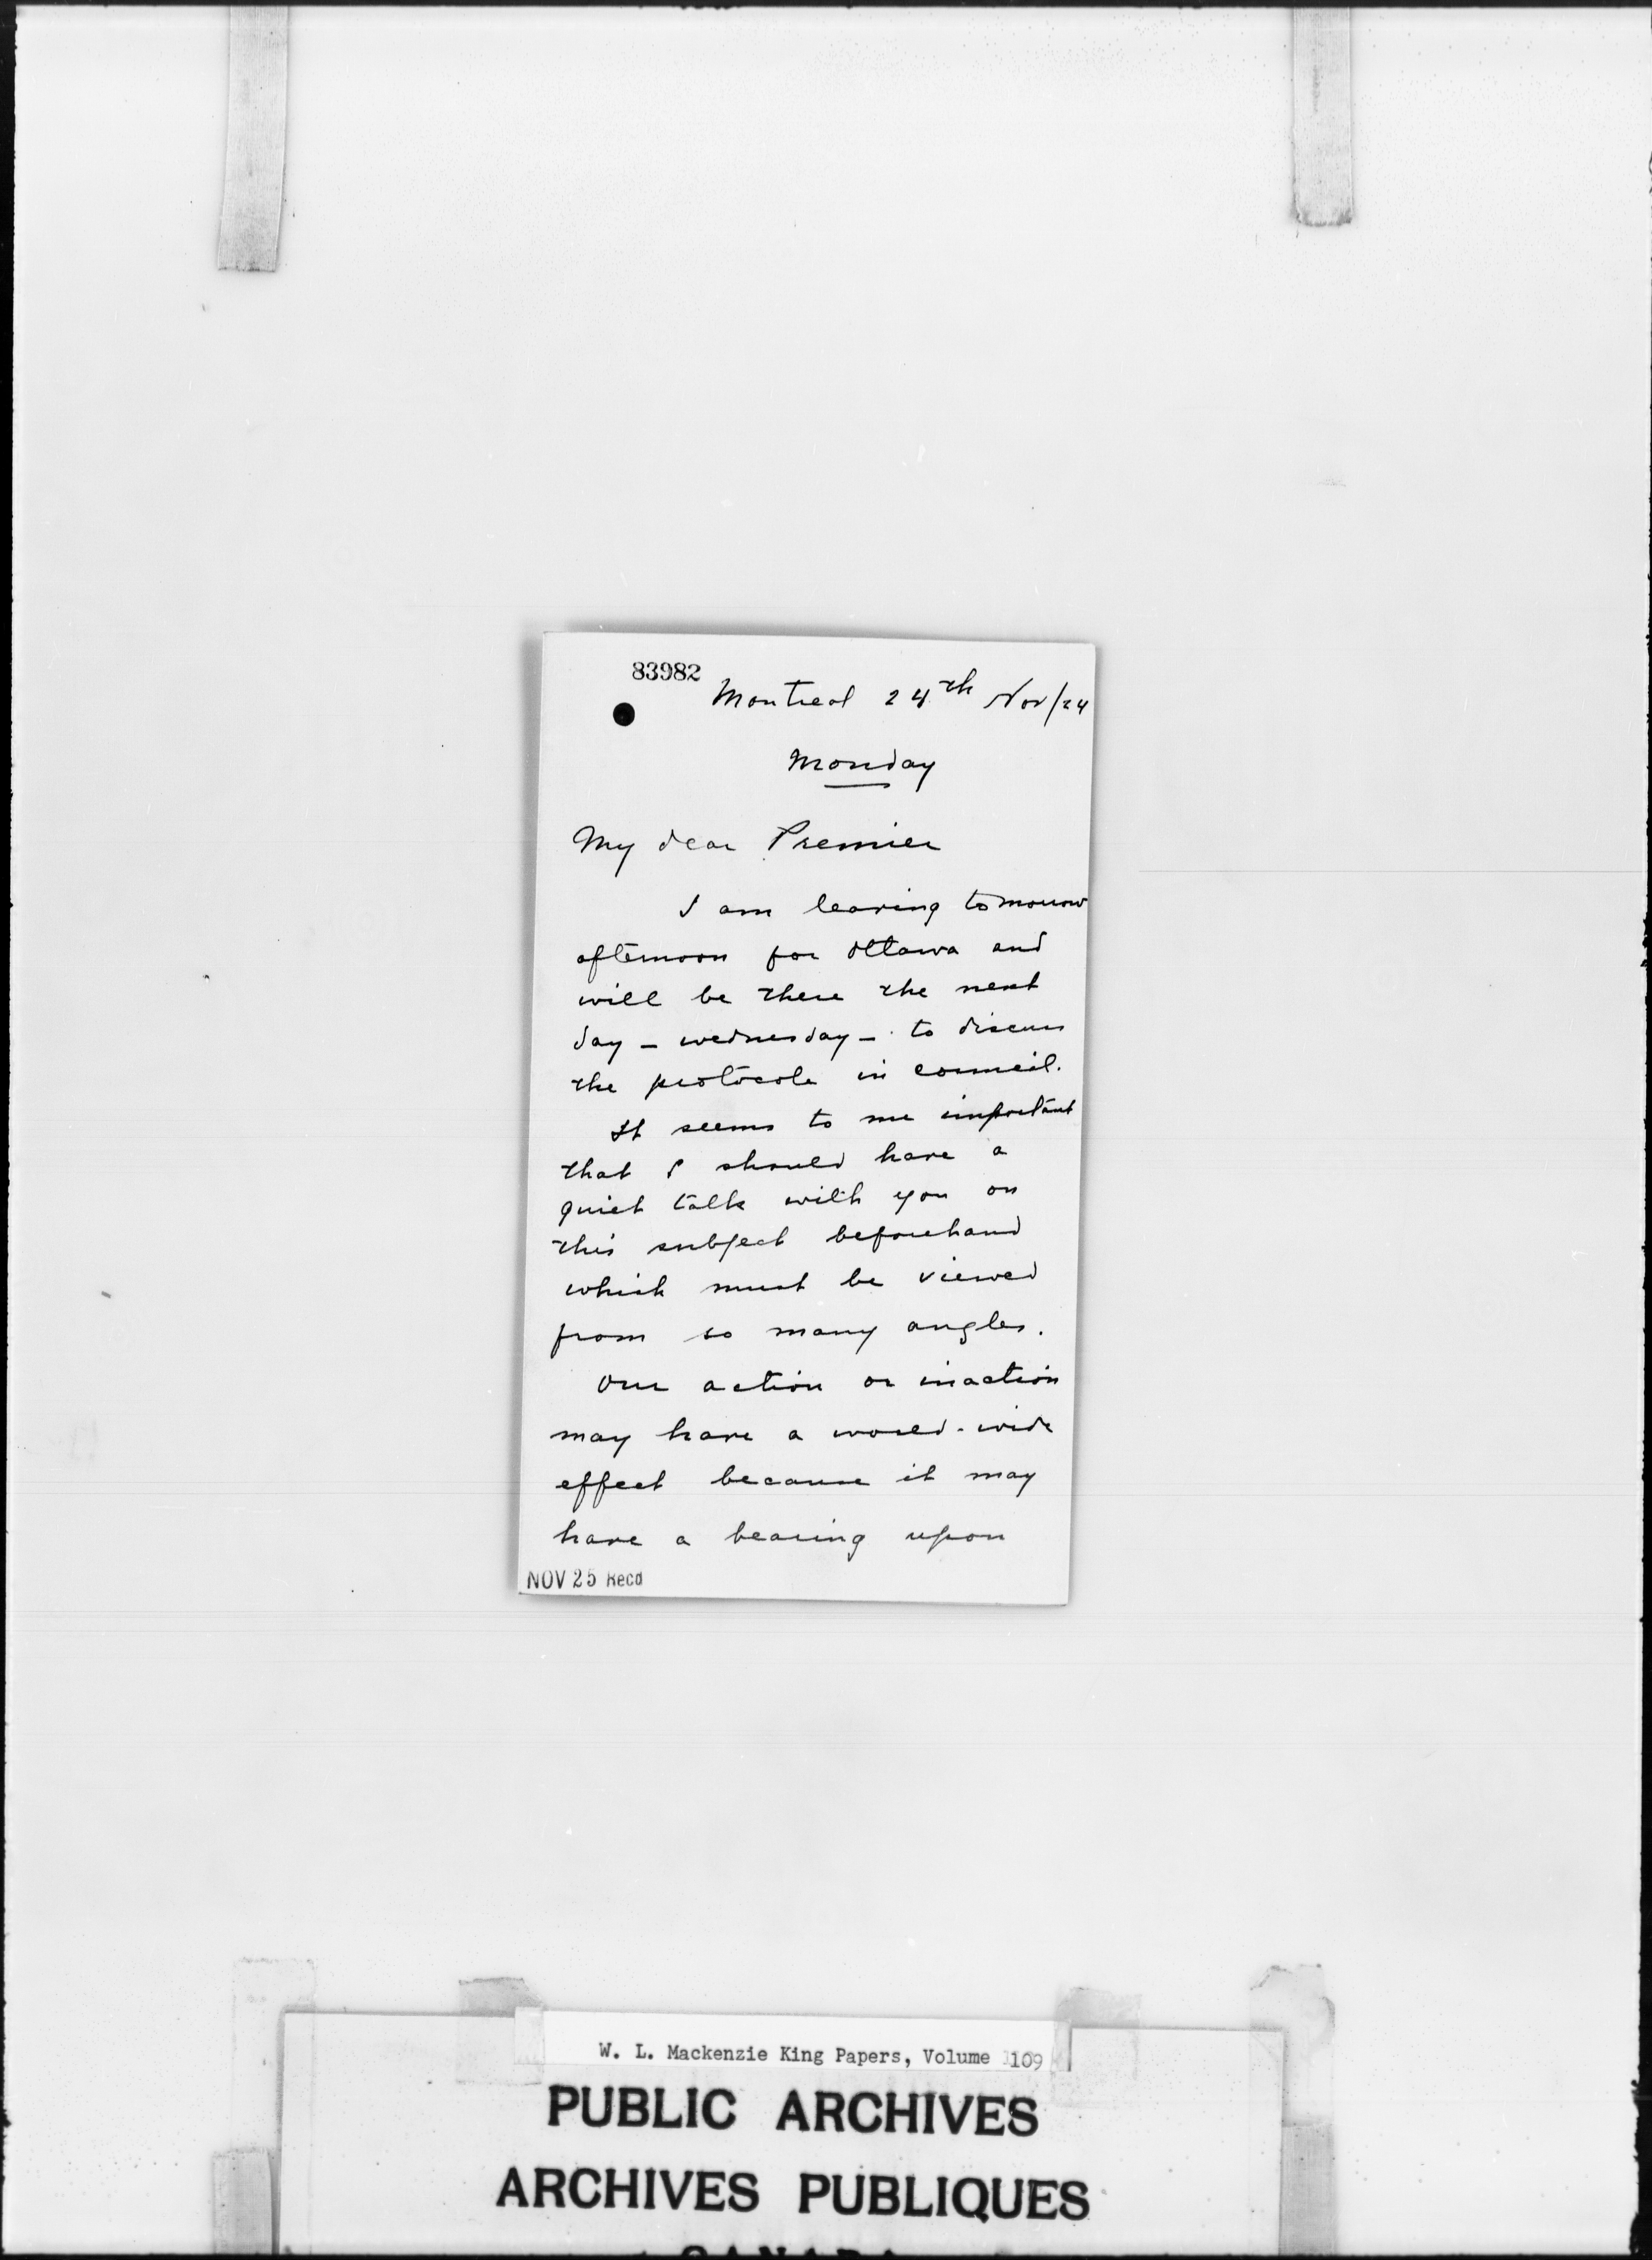 83982
Montreal 24th Nov/24
Monday
My dear Premier
I am leaving tomorrow
afternoon for Ottawa and
will be there the next
day - wednesday - to discuss
the protocole in council.
It seems to me important
that I should have a
quiet talk with you on
this subject beforehand
which must be viewed
from so many angles.
Our action or inaction
may have a world-wide
effect because it may
have a bearing upon
NOV 25 Recd
W. L. Mackenzie King Papers, Volume 109
PUBLIC ARCHIVES
ARCHIVES PUBLIQUES
CANADA